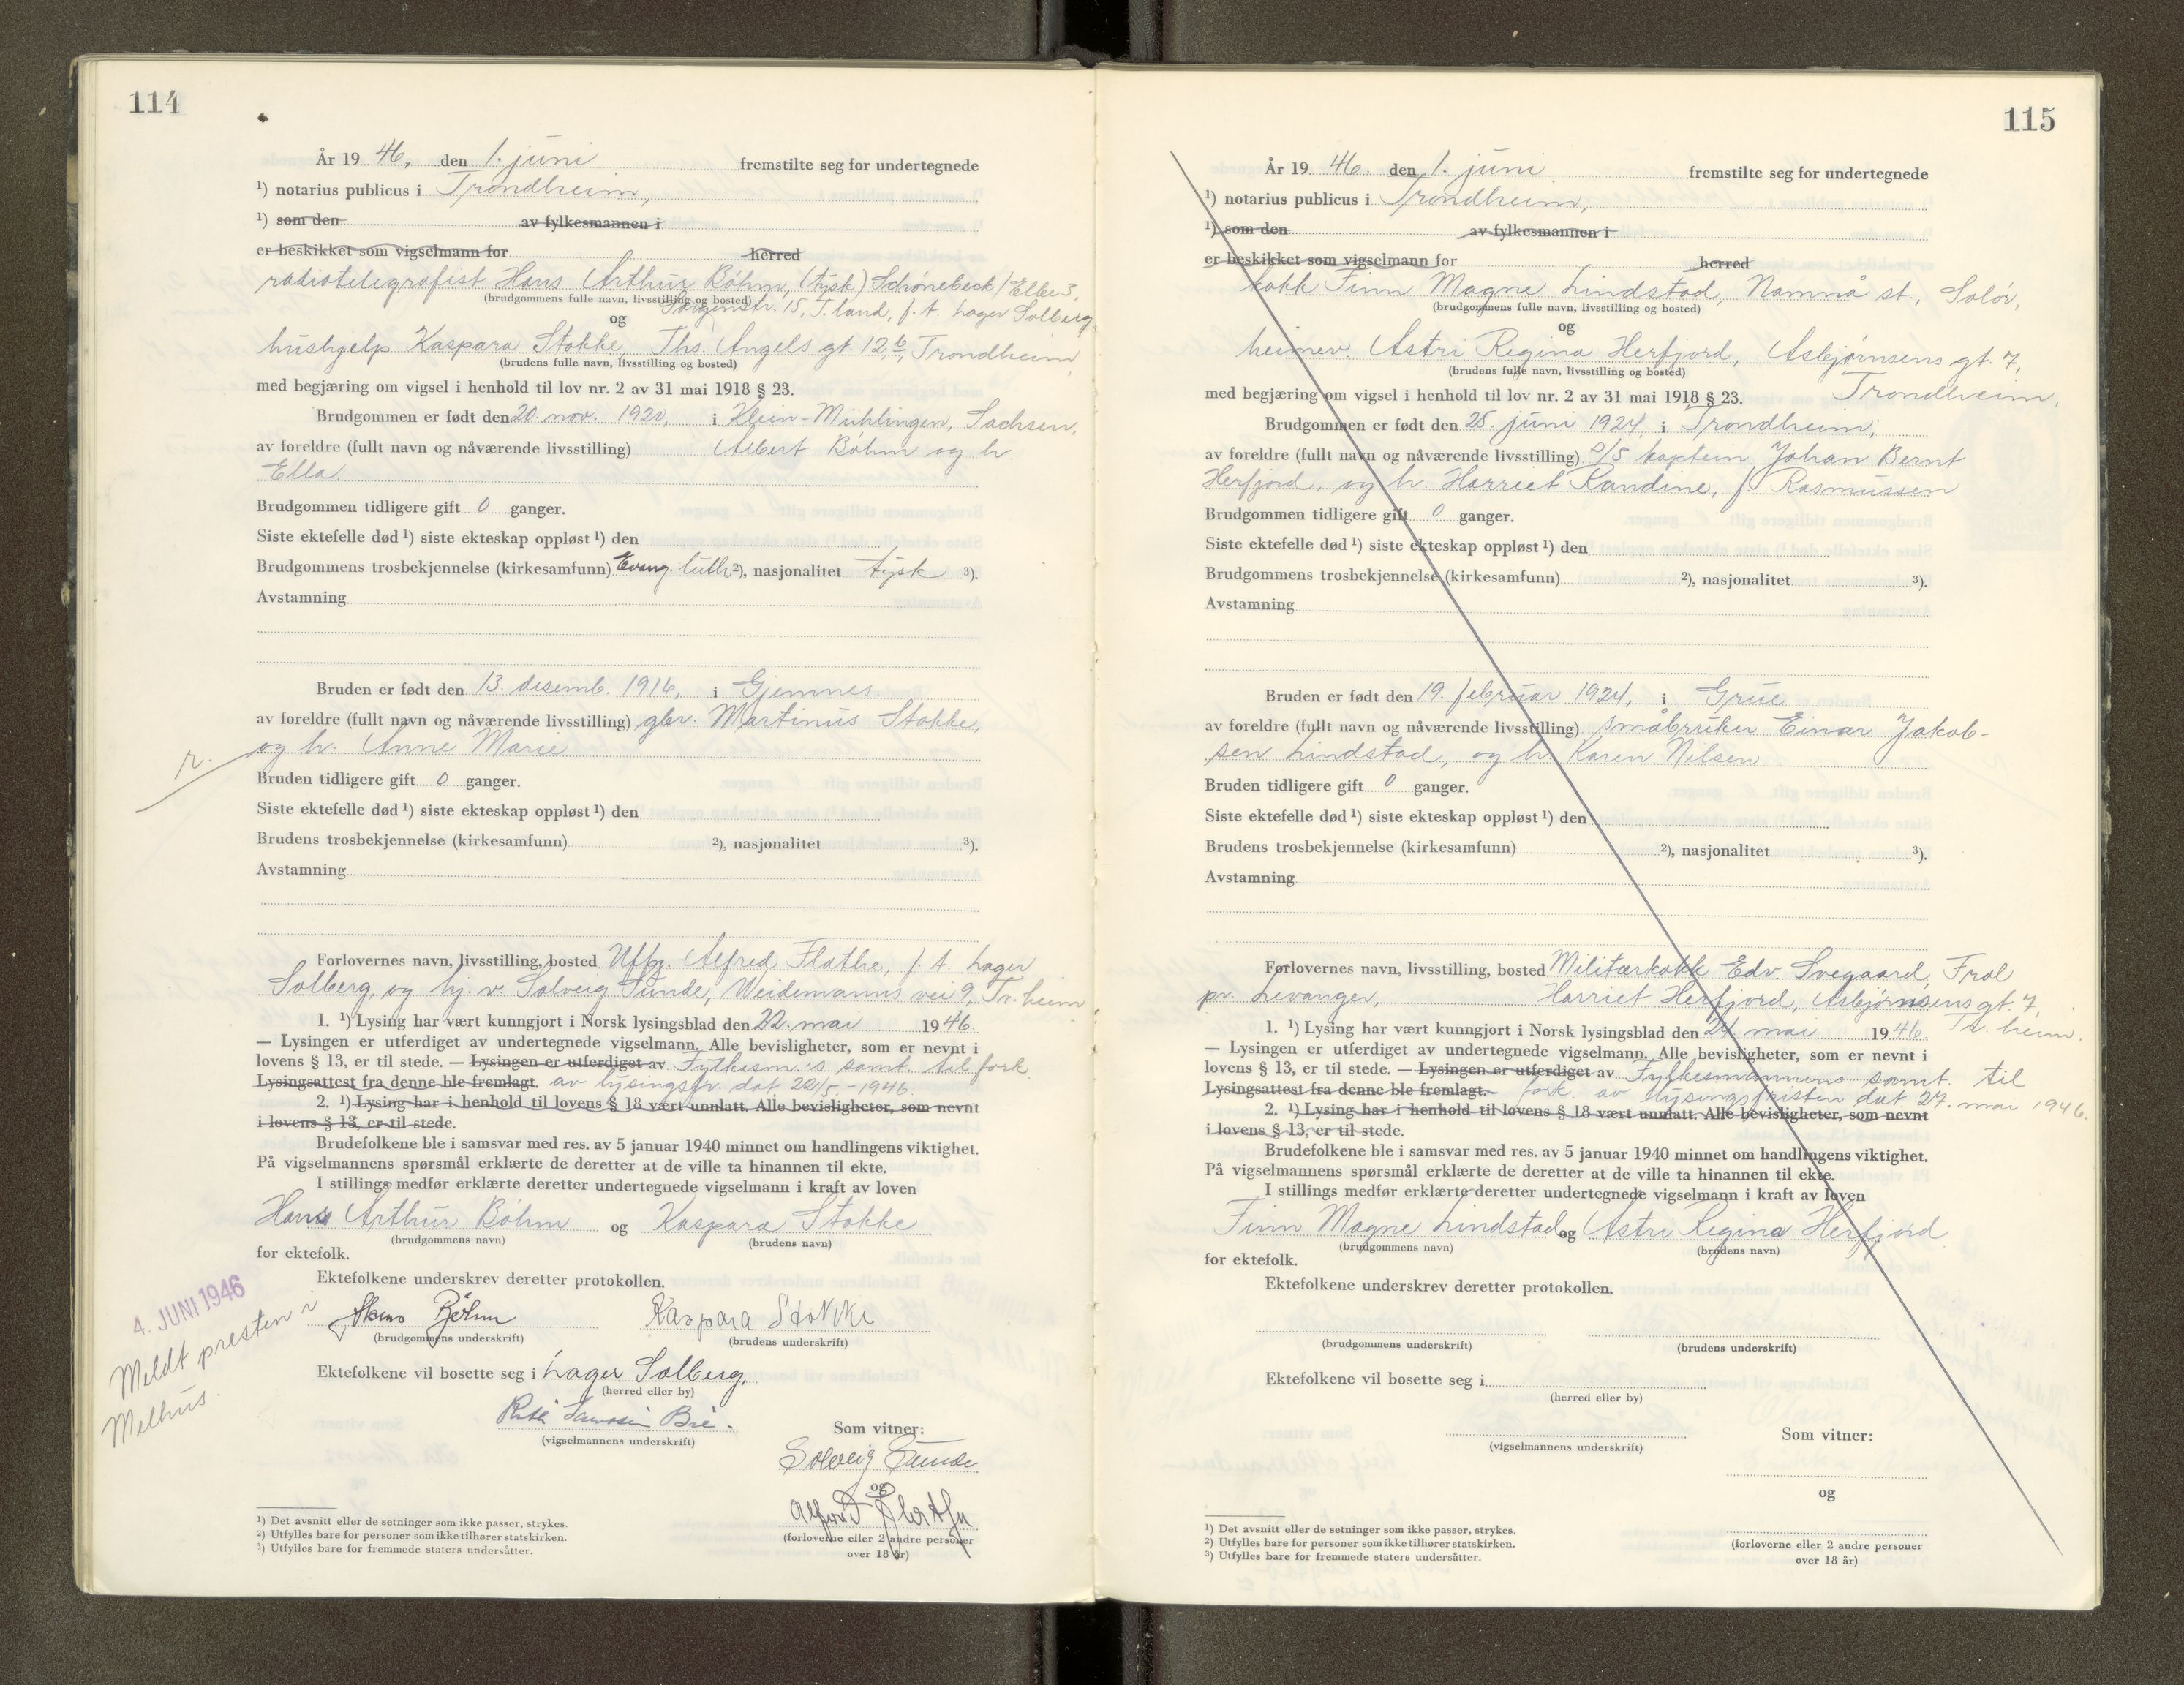 114
År 19 46, den 1. juni fremstilte seg for undertegnede
1) notarius publicus i Trondheim,
1) som den av fylkesmannen i
er beskikket som vigselmann for herred
radiotelegrafist Hans Arthur Böhm, (tysk) Schönebeck/Elbe 3,
(brudgommens fulle navn, livsstilling og bosted)
str. 15, T.land, f. t. Lager Solberg
og
hushjelp Kaspara Stokke, Ths. Angels gt. 12b, Trondheim,
(brudens fulle navn, livsstilling og bosted)
med begjæring om vigsel i henhold til lov nr. 2 av 31 mai 1918 § 23.
Brudgommen er født den 20. nov. 1920, i Klein-Mühlingen, Sachsen,
av foreldre (fullt navn og nåværende livsstilling) Albert Böhm og h.
Ella.
Brudgommen tidligere gift 0 ganger.
Siste ektefelle død 1) siste ekteskap oppløst 1) den
Brudgommens trosbekjennelse (kirkesamfunn) Evang. luth 2), nasjonalitet tysk 3).
Avstamning
Bruden er født den 13. desemb. 1916, i Gjemnes
av foreldre (fullt navn og nåværende livsstilling) gbr. Martinus Stokke,
og h. Anne Marie
r.
Bruden tidligere gift 0 ganger.
Siste ektefelle død 1) siste ekteskap oppløst 1) den
Brudens trosbekjennelse (kirkesamfunn) 2), nasjonalitet 3).
Avstamning
Forlovernes navn, livsstilling, bosted Uffz. Alfred Flathe, f. t. Lager
Solberg, og hj. v. Solveig Sunde, Weidemanns vei 9, Tr.heim
1. 1) Lysing har vært kunngjort i Norsk lysingsblad den 22. mai 1946.
— Lysingen er utferdiget av undertegnede vigselmann. Alle bevisligheter, som er nevnt i
lovens § 13, er til stede. — Lysingen er utferdiget av Fylkesm.'s samt. til fork.
Lysingsattest fra denne ble fremlagt. av lysingsfr. dat 22/5 - 1946.
2. 1) Lysing har i henhold til lovens § 18 vært unnlatt. Alle bevisligheter, som nevnt
i lovens § 13, er til stede.
Brudefolkene ble i samsvar med res. av 5 januar 1940 minnet om handlingens viktighet.
På vigselmannens spørsmål erklærte de deretter at de ville ta hinannen til ekte.
I stillings medfør erklærte deretter undertegnede vigselmann i kraft av loven
Hans Arthur Böhm og Kaspara Stokke
(brudgommens navn) (brudens navn)
for ektefolk.
Ektefolkene underskrev deretter protokollen.
4. JUNI 1946
Meldt presten i
Melhus.
Hans Böhm Kaspara Stokke
(brudgommens underskrift) (brudens underskrift)
Ektefolkene vil bosette seg i Lager Solberg.
(herred eller by)
(vigselmannens underskrift)
Som vitner:
Solveig Sunde
og
Alfred Flathe
(forloverne eller 2 andre personer
over 18 år)
1) Det avsnitt eller de setninger som ikke passer, strykes.
2) Utfylles bare for personer som ikke tilhører statskirken.
3) Utfylles bare for fremmede staters undersåtter.
115
År 19 46. den 1. juni fremstilte seg for undertegnede
1) notarius publicus i Trondheim,
1) som den av fylkesmannen i
er beskikket som vigselmann for herred
kokk Finn Magne Lindstad, Namnå st., Solør,
(brudgommens fulle navn, livsstilling og bosted)
og
heimev. Astri Regina Herfjord, Asbjørnsens gt. 7,
(brudens fulle navn, livsstilling og bosted)
Trondheim,
med begjæring om vigsel i henhold til lov nr. 2 av 31 mai 1918 § 23.
Brudgommen er født den 25. juni 1924 i Trondheim;
av foreldre (fullt navn og nåværende livsstilling) D/S kaptein Johan Bernt
Herfjord, og h. Harriet Randine, f. Rasmussen
Brudgommen tidligere gift 0 ganger.
Siste ektefelle død 1) siste ekteskap oppløst 1) den
Brudgommens trosbekjennelse (kirkesamfunn) 2), nasjonalitet 3).
Avstamning
Bruden er født den 19. februar 1924, i Grue
av foreldre (fullt navn og nåværende livsstilling) småbruker Einar Jakob-
sen Lindstad, og h. Karen Nilsen
Bruden tidligere gift 0 ganger.
Siste ektefelle død 1) siste ekteskap oppløst 1) den
Brudens trosbekjennelse (kirkesamfunn) 2), nasjonalitet 3).
Avstamning
Forlovernes navn, livsstilling, bosted Militærkokk Edv. Svegaard, Frol
pr. Levanger, Harriet Herfjord, Asbjørnsens gt. 7,
Tr. heim.
1. 1) Lysing har vært kunngjort i Norsk lysingsblad den 24. mai 1946.
— Lysingen er utferdiget av undertegnede vigselmann. Alle bevisligheter, som er nevnt i
lovens § 13, er til stede. — Lysingen er utferdiget av Fylkesmannens samt. til
Lysingsattest fra denne ble fremlagt. fork. av lysingsfristen dat 27. mai 1946.
2. 1) Lysing har i henhold til lovens § 18 vært unnlatt. Alle bevisligheter, som nevnt
i lovens § 13, er til stede.
Brudefolkene ble i samsvar med res. av 5 januar 1940 minnet om handlingens viktighet.
På vigselmannens spørsmål erklærte de deretter at de ville ta hinannen til ekte.
I stillings medfør erklærte deretter undertegnede vigselmann i kraft av loven
Finn Magne Lindstad og Astri Regina Herfjord
(brudgommens navn) (brudens navn)
for ektefolk.
Ektefolkene underskrev deretter protokollen.
(brudgommens underskrift) (brudens underskrift)
Ektefolkene vil bosette seg i
(herred eller by)
(vigselmannens underskrift)
Som vitner:
og
(forloverne eller 2 andre personer
over 18 år)
1) Det avsnitt eller de setninger som ikke passer, strykes.
2) Utfylles bare for personer som ikke tilhører statskirken.
3) Utfylles bare for fremmede staters undersåtter.